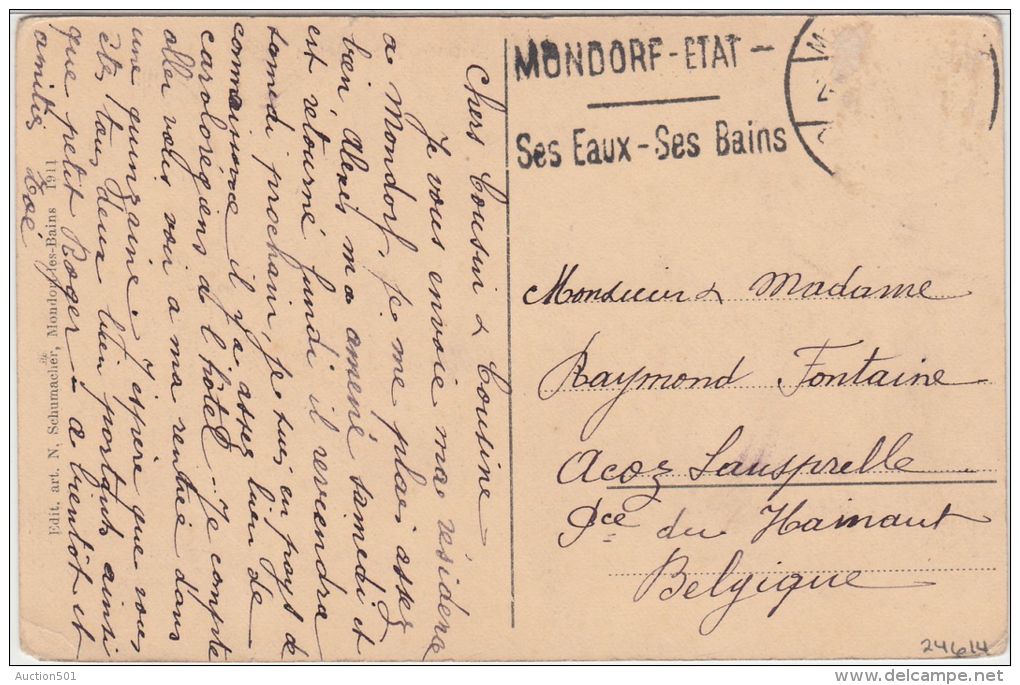 Chers Cousin & Cousine
Je vous envoie ma résidera
a Mondorf, je me plais assez
bien, Alexis m'a amené samedi et
est retourné lundi il reviendra
samedi prochain, je suis en pays de
connaissance il y a assez bien de
carolorégiens a l'hôtel. Je compte
aller vous voir a ma rentrée dans
une quinzaine. J'espère que vous
êtes tous deux bien portants ainsi
que petit Roger - a bientôt et
amitiés
Zoé
Edit. art. N. Schumacher, Mondorf-les-Bains 1911
MONDORF-ETAT-
Ses Eaux-Ses Bains
Monsieur & Madame
Raymond Fontaine
Acoz Lausprelle
Pce du Hainaut
Belgique
24614
Auction501
delcampe.net